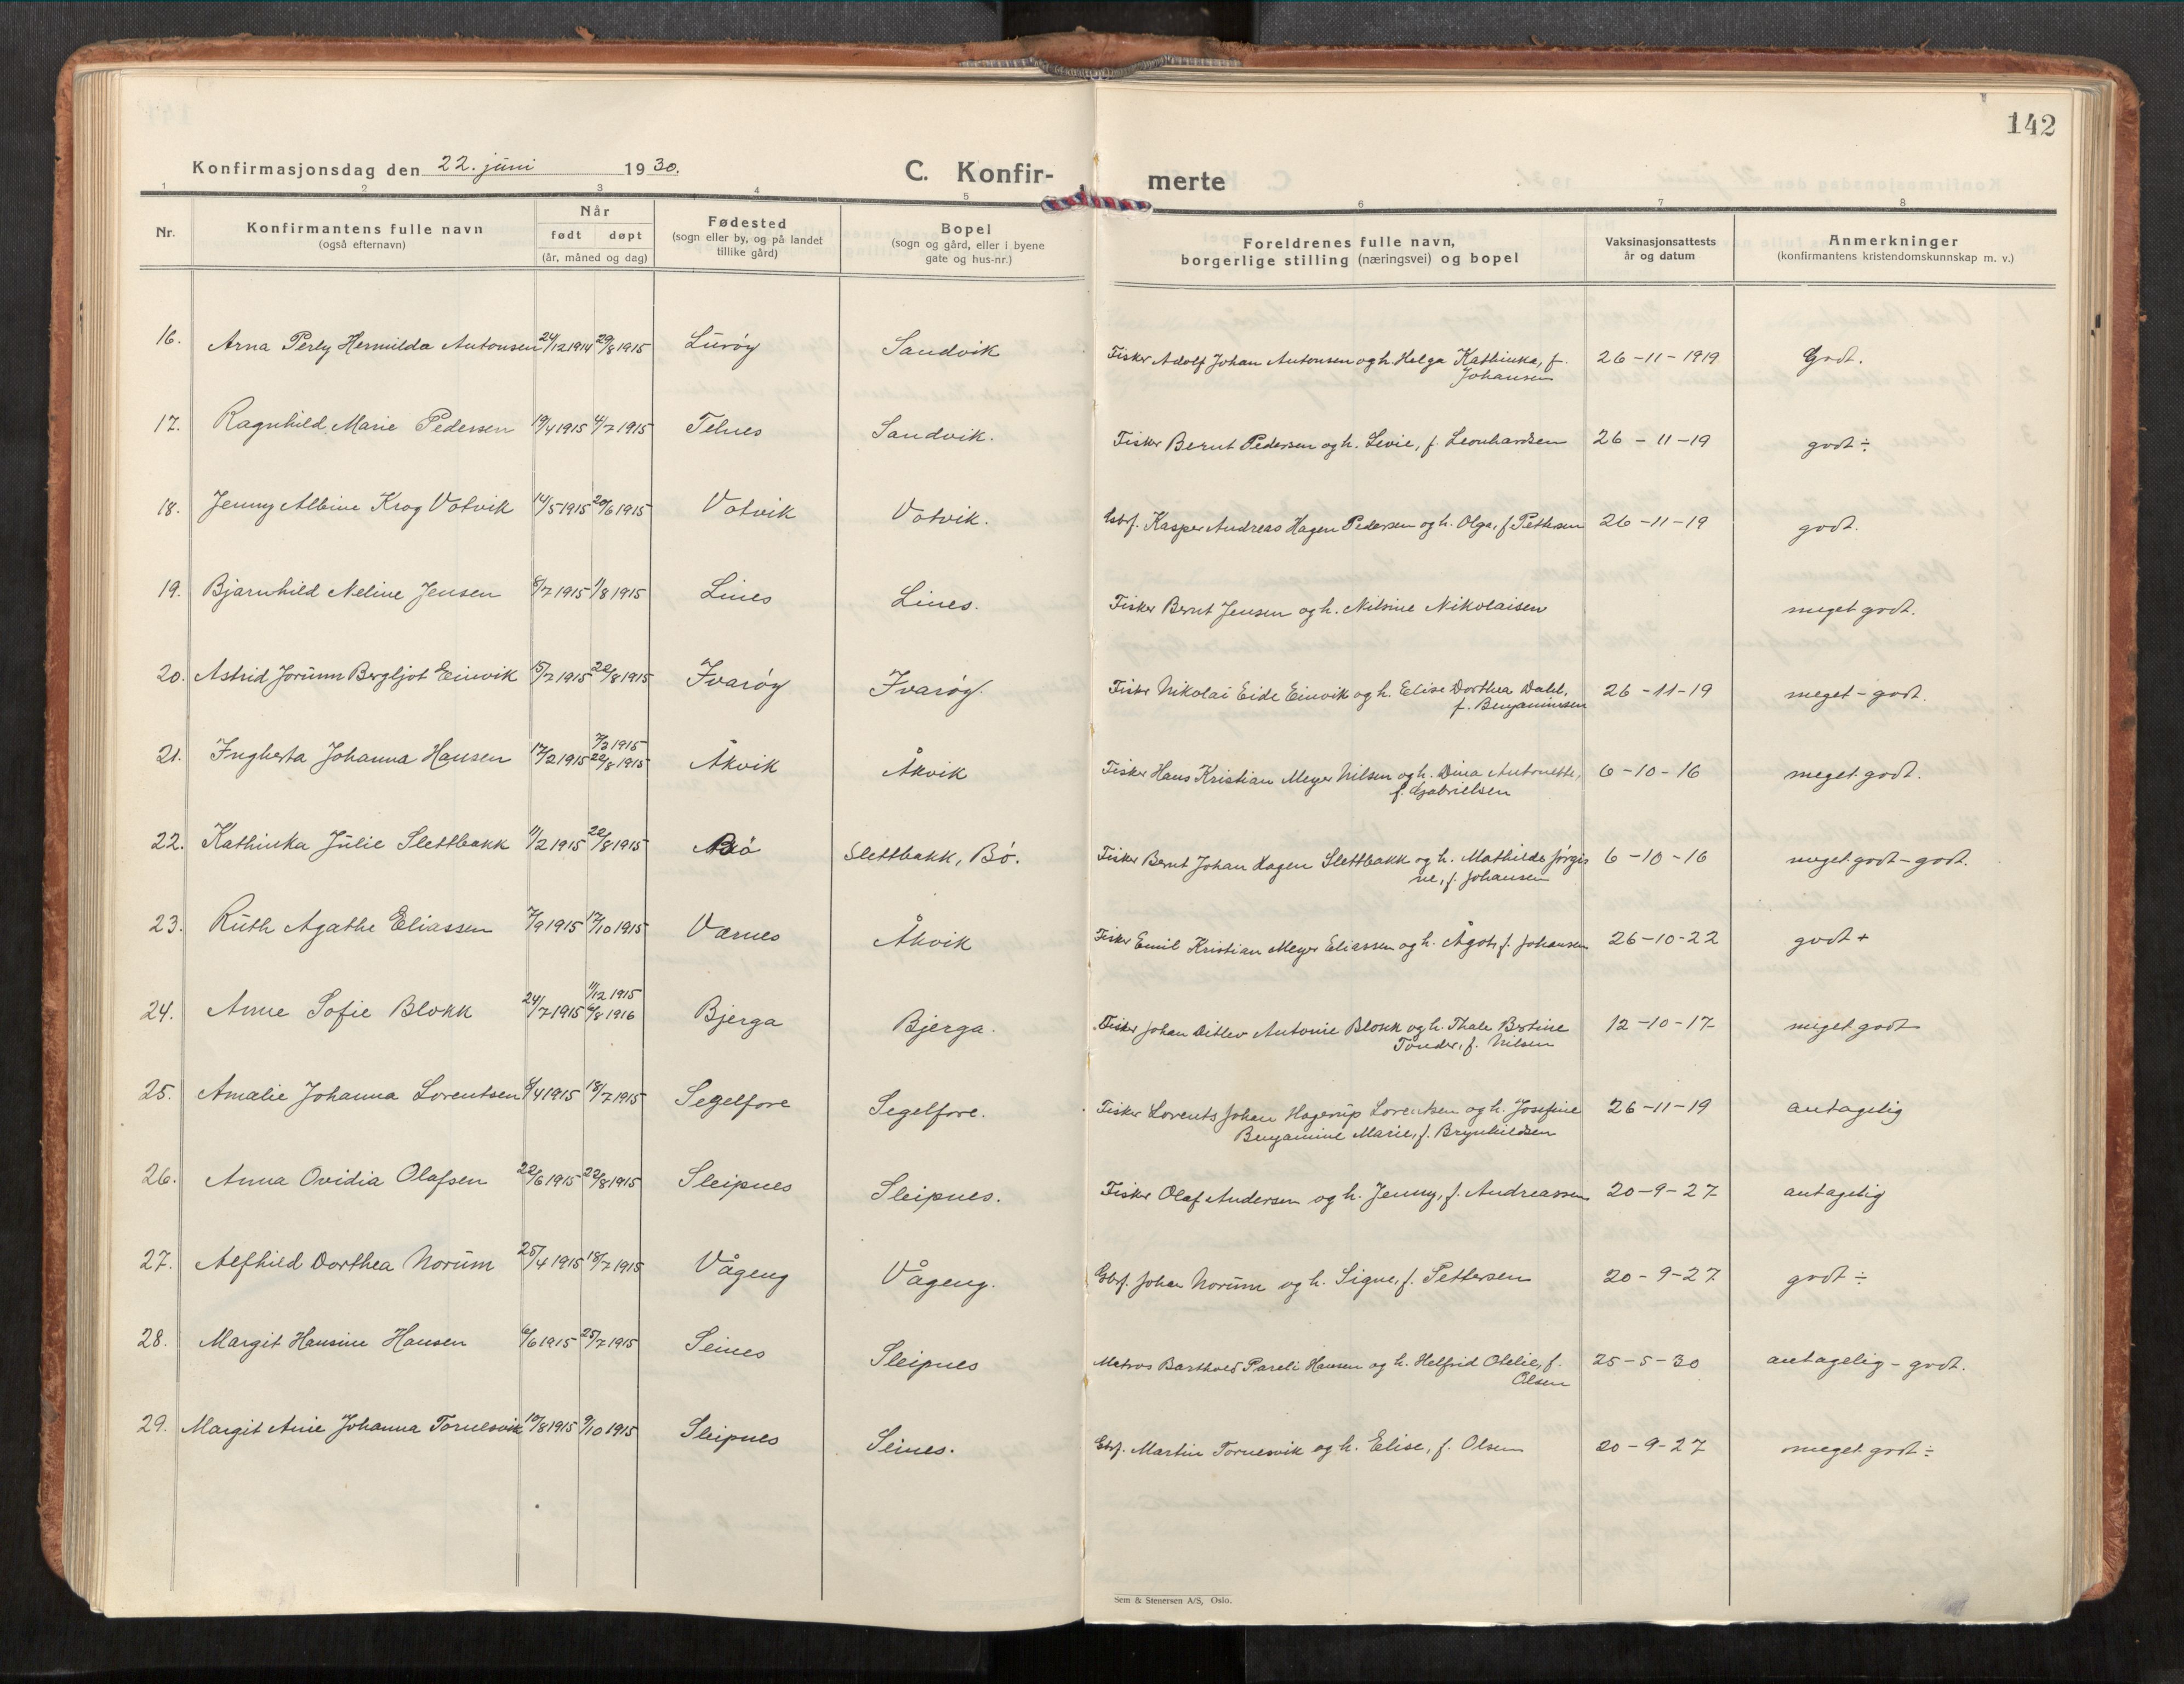 142
Konfirmasjonsdag den 22. juni 1930.
C. Konfir-
merte
1 2 3 4 5 6 7 8
Nr.
Konfirmantens fulle navn
(også efternavn)
Når
født døpt
(år, måned og dag)
Fødested
(sogn eller by, og på landet
tillike gård)
Bopel
(sogn og gård, eller i byene
gate og hus-nr.)
Foreldrenes fulle navn,
borgerlige stilling (næringsvei) og bopel
Vaksinasjonsattests
år og datum
Anmerkninger
(konfirmantens kristendomskunnskap m. v.)
16. Arna Perly Hermilda Antonsen 24/12 1914 29/8 1915 Lurøy Sandvik Fisker Adolf Johan Antonsen og h. Helga Kathinka, f. 26-11-1919 Godt.
Johansen
17. Ragnhild Marie Pedersen 19/4 1915 4/7 1915 Telnes Sandvik. Fisker Bernt Pedersen og h. Levie, f. Leonhardsen 26-11-19 godt ÷
18. Jenny Albine Krog Votvik 14/5 1915 20/6 1915 Votvik Votvik. Gbf. Kasper Andreas Hagen Pedersen og h. Olga, f. Pettersen 26-11-19 godt.
19. Bjarnhild Neline Jensen 8/7 1915 1/8 1915 Lines Lines. Fisker Bernt Jensen og h. Nilsine Nikolaisen meget godt.
20. Astrid Jorunn Bergljot Einvik 15/7 1915 22/8 1915 Ivarøy Ivarøy. Fisker Nikolai Eide Einvik og h. Elise Dorthea Dahl, 26-11-19 meget - godt.
f. Benjaminsen
7/3 1915
21. Ingberta Johanna Hansen 17/2 1915 22/8 1915 Åkvik Åkvik Fisker Hans Kristian Meyer Nilsen og h. Dina Antonette, 6-10-16 meget godt.
f. Gabrielsen
22. Kathinka Julie Slettbakk 11/2 1915 22/8 1915 Bö Slettbakk, Bö. Fisker Bernt Johan Hagen Slettbakk og h. Mathilde Jørgi 6-10-16 meget godt - godt.
ne, f. Johansen
23. Ruth Agathe Eliassen 7/9 1915 17/10 1915 Værnes Åkvik Fisker Emil Kristian Meyer Eliassen og h. Ågot, f. Johansen 26-10-22 godt +
11/12 1915
24. Anne Sofie Blokk 24/7 1915 6/8 1916 Bjerga Bjerga. Fisker Johan Ditlev Antonie Blokk og h. Thale Bertine 12-10-17 meget godt
Tønder, f. Nilsen
25. Amalie Johanna Lorentsen 8/4 1915 18/7 1915 Segelfore Segelfore. Fisker Lorents Johan Hagerup Lorentsen og h. Josefine 26-11-19 antagelig
Benjamine Marie, f. Brynhildsen
26. Anna Ovidia Olafsen 22/6 1915 29/8 1915 Sleipnes Sleipnes. Fisker Olaf Andersen og h. Jenny, f. Andreassen 20-9-27 antagelig
27. Alfhild Dorthea Norum 25/4 1915 18/7 1915 Vågeng Vågeng. Gbf. Johan Norum og h. Signe, f. Pettersen 20-9-27 godt ÷
28. Margit Hansine Hansen 6/6 1915 25/7 1915 Seines Sleipnes Matros Barthold Pareli Hansen og h. Helfrid Otelie, f. 25-5-30 antagelig - godt.
Olsen
29. Margit Anie Johanna Tornesvik 10/8 1915 9/10 1915 Sleipnes Seines. Gbf. Martin Tornesvik og h. Elise, f. Olsen 20-9-27 meget godt ÷
Sem & Stenersen A/S, Oslo.